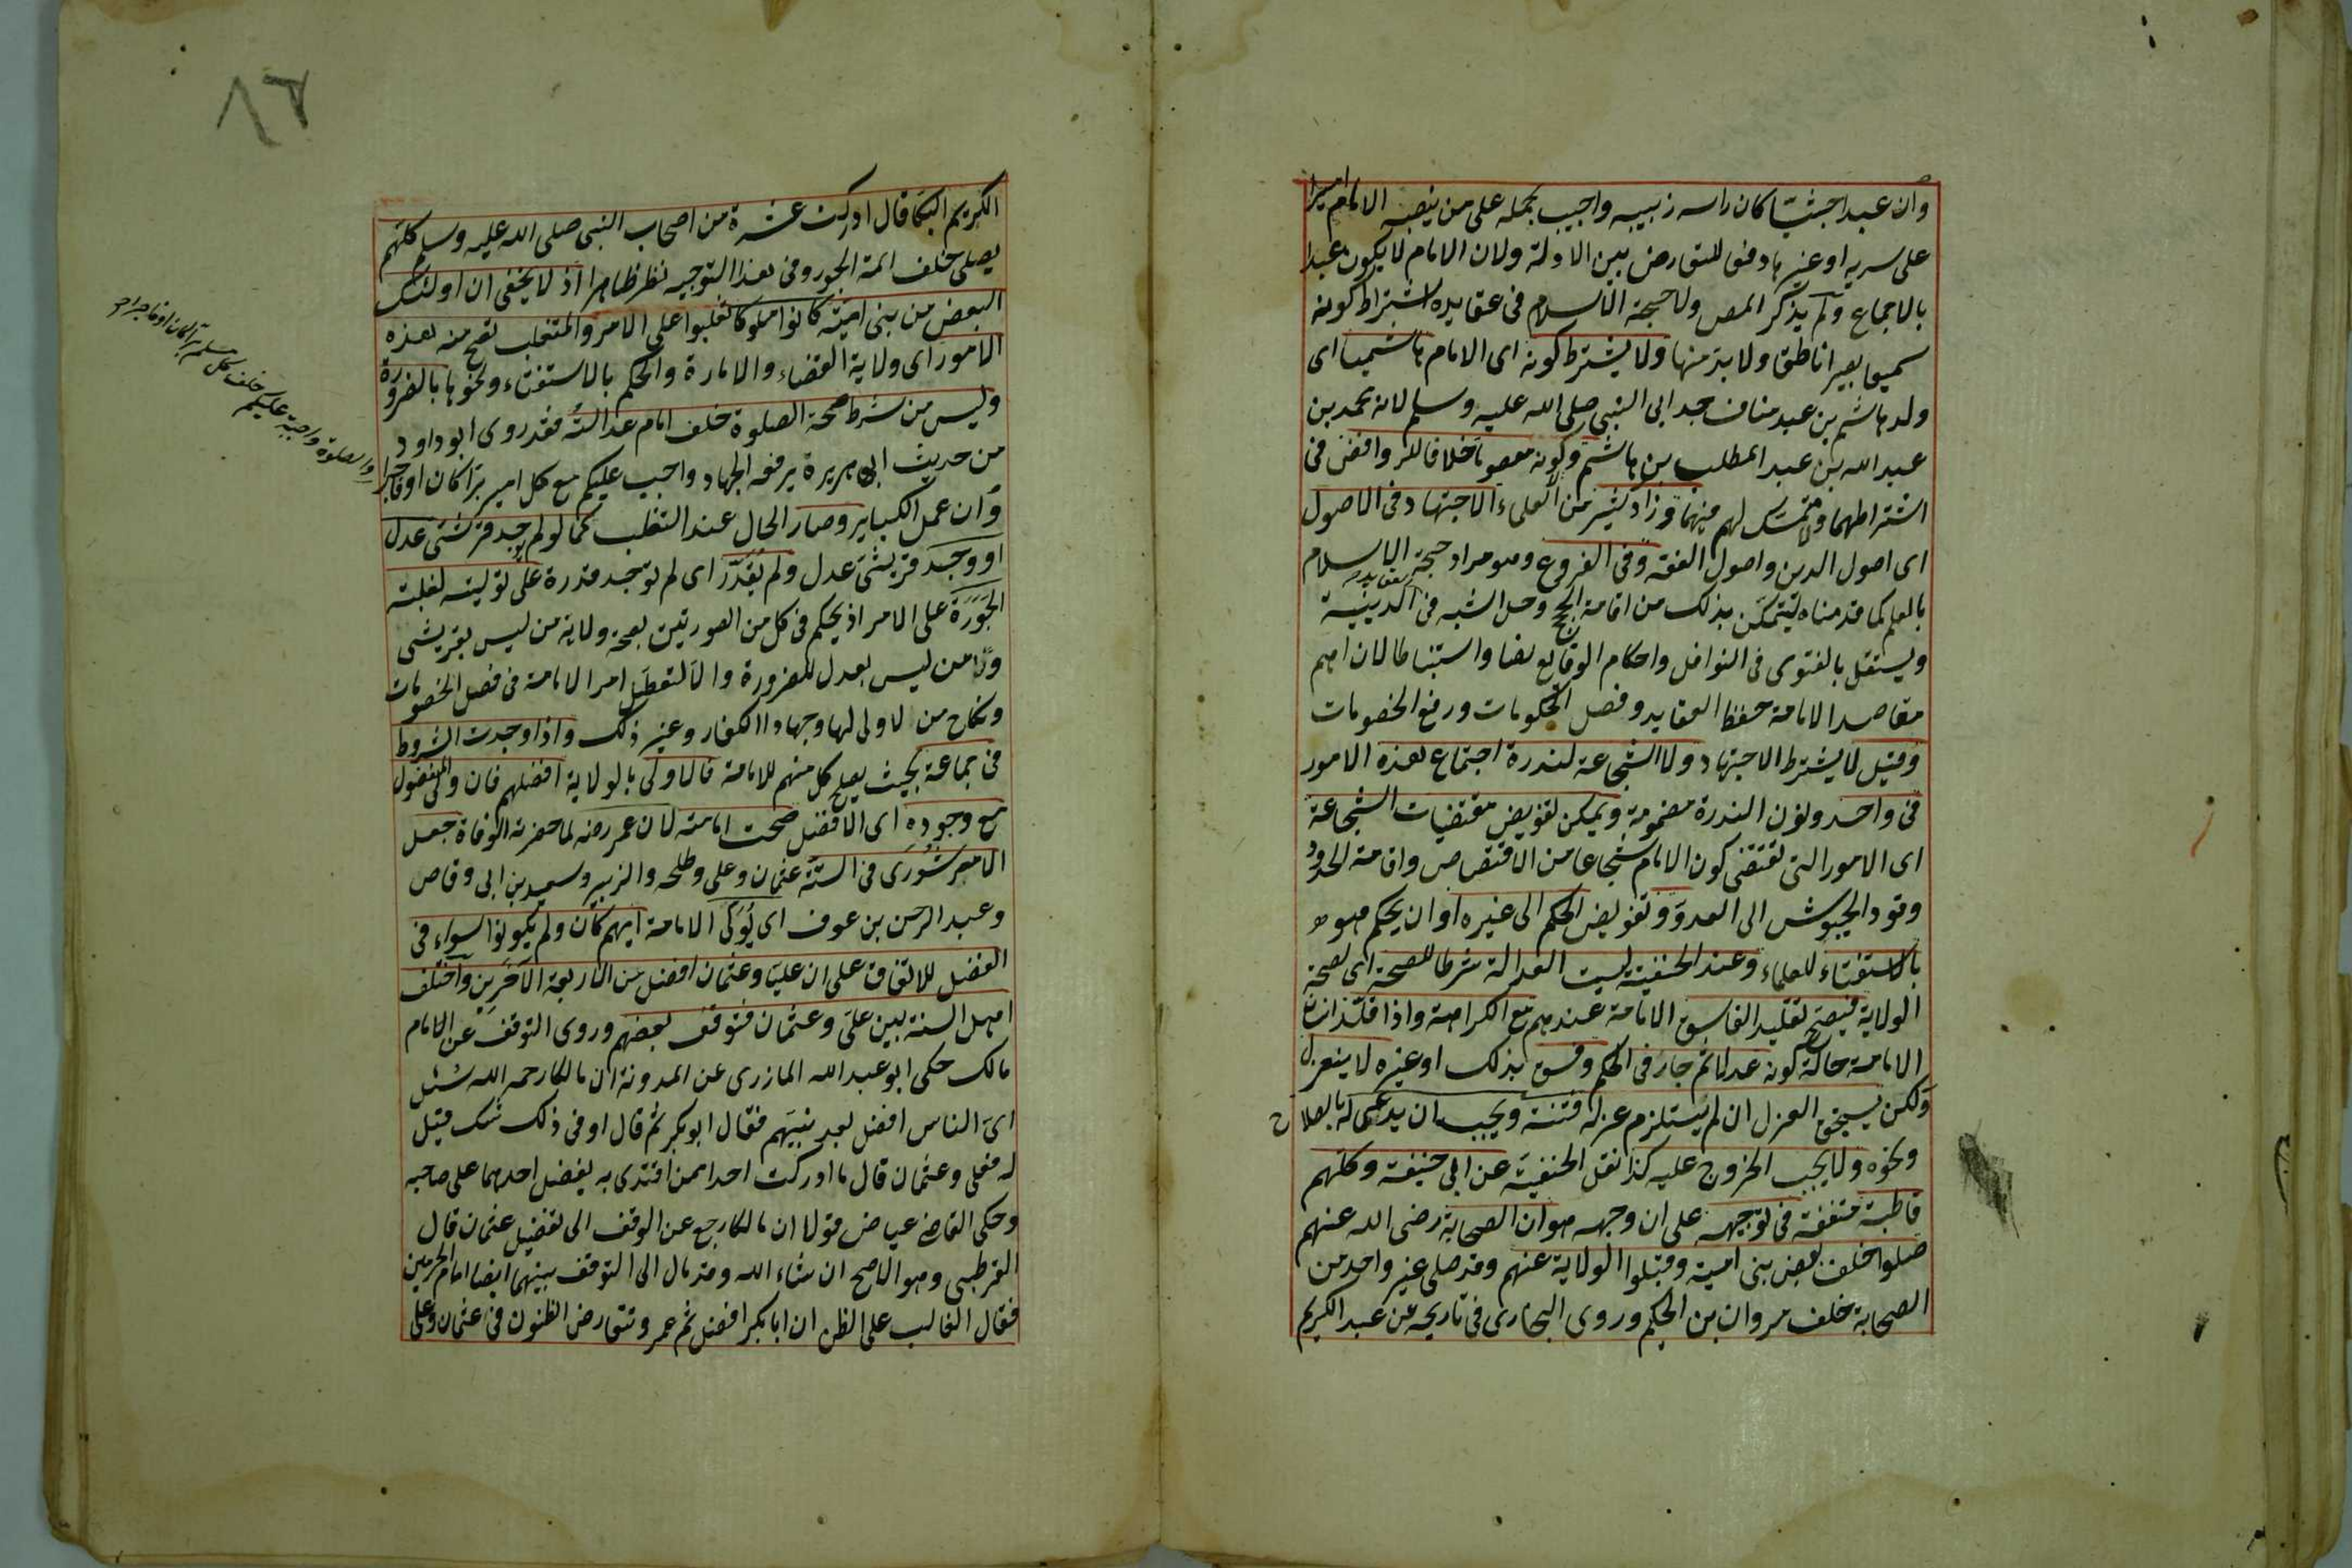 وان عبدا حبشيّا كان راسه زبيبه واجيب بحمله على من ينصبه الامام اميرا
على سرية او غيرها دفعا للتعارض بين الادلة ولان الامام لا يكون عبدا
بالاجماع ولم يذكر المص ولا حجة الاسلام فى عقايده اشتراط كونه
سميعا بصيرا ناطقا ولا بد منها ولا يشترط كونه اى الامام هاشميا اى
ولد هاشم بن عبد مناف جد ابى النبى صلى الله عليه وسلم لانه محمد بن
عبد الله بن عبد المطلب بن هاشم وكونه معصوما خلافا للروافض فى
اشتراطهما ولا متمسك لهم فيهما وزاد كثير من العلماء الاجتهاد فى الاصول
اى اصول الدين واصول الفقه وفى الفروع وهو مراد حجة الاسلام
بالعلم كما قدمناه ليتمكن بذلك من اقامة الحجج وحل الشبه فى العقايد الدينية
ويستقل بالفتوى فى النوازل واحكام الوقايع نصا واستنباطا لان اهم
مقاصد الامامة حفظ العقايد وفصل الحكومات ورفع الخصومات
وقيل لا يشترط الاجتهاد ولا الشجاعة لندرة اجتماع هذه الامور
فى واحد ويمكن تفويض مقتضيات الشجاعة
اى الامور التى تقتضى كون الامام شجاعا من الاقتصاص واقامة الحدود
وقود الجيوش الى العدوّ وتفويض الحكم الى غيره او ان يحكم هو
بالاستفتاء للعلماء وعند الحنفية ليست العدالة شرطا للصحة اى لصحة
الولاية فيصح تقليد الفاسق الامامة عندهم مع الكراهة واذا قلّد انسان
الامامة حالة كونه عدلا ثم جار فى الحكم وفسق بذلك او غيره لا ينعزل
ولكن يستحق العزل ان لم يستلزم عزله فتنة ويجب ان يدعى له بالصلاح
ونحوه ولا يجب الخروج عليه كذا نقل الحنفية عن ابى حنيفة وكلهم
قاطبة متفقة فى توجيهه على ان وجهه هو ان الصحابة رضى الله عنهم
صلوا خلف بعض بنى امية وقبلوا الولاية عنهم وقد صلى غير واحد من
الصحابة خلف مروان بن الحكم وروى البخارى فى تاريخه عن عبد الكريم
٨٦
الكريم البكا قال ادركت عشرة من اصحاب النبى صلى الله عليه وسلم كلهم
يصلى خلف ائمة الجور وفى هذا التوجيه نظر ظاهر اذ لا يخفى ان اولئك
البعض من بنى امية كانوا ملوكا تغلبوا على الامر والمتغلب تصح منه هذه
الامور اى ولاية القضاء والامارة والحكم بالاستفتاء ونحوها بالضرورة
وليس من شرط صحة الصلوة خلف امام عدالته فقد روى ابو داود
من حديث ابى هريرة يرفعه الجهاد واجب عليكم مع كل امير برّا كان او فاجرا
والصلوة واجبة عليكم خلف كل مسلم برا كان او فاجرا
وان عمل الكباير وصار الحال عند التغلب كما لو لم يوجد قرشى عدل
او وجد قرشى عدل ولم يُقدَر اى لم توجد قدرة على توليته لغلبة
الجَوَرَة على الامر اذ يحكم فى كل من الصورتين بصحة ولاية من ليس بقرشى
ومن ليس بعدل للضرورة والا لتعطل امر الامامة فى فصل الخصومات
ونكاح من لا ولى لها وجهاد الكفار وغير ذلك واذا وجدت الشروط
فى جماعة بحيث يصلح كل منهم للامامة فالاولى بالولاية افضلهم فان ولى المفضول
مع وجوده اى الافضل صحت امامته لان عمر رضه لما حضرته الوفاة جعل
الامر شُورَى فى الستة عثمان وعلى وطلحه والزبير وسعد بن ابى وقاص
وعبد الرحمن بن عوف اى يُوَلَّى الامامة ايهم كان ولم يكونوا سواء فى
الفضل للاتفاق على ان عليا وعثمان افضل من الاربعة الآخرين واختلف
اهل السنة بين على وعثمان فتوقف بعضهم وروى التوقف عن الامام
مالك حكى ابو عبد الله المازرى عن المدونة ان مالكا رحمه الله سئل
اىّ الناس افضل بعد نبيهم فقال ابو بكر ثم قال او فى ذلك شك قيل
له فعلى وعثمان قال ما ادركت احدا ممن اقتدى به يفضل احدهما على صاحبه
وحكى القاضى عياض قولا ان مالكا رجع عن الوقف الى تفضيل عثمان قال
القرطبى وهو الاصح ان شاء الله وقد مال الى التوقف بينهما ايضا امام الحرمين
فقال الغالب على الظن ان ابا بكر افضل ثم عمر وتتعارض الظنون فى عثمان وعلى